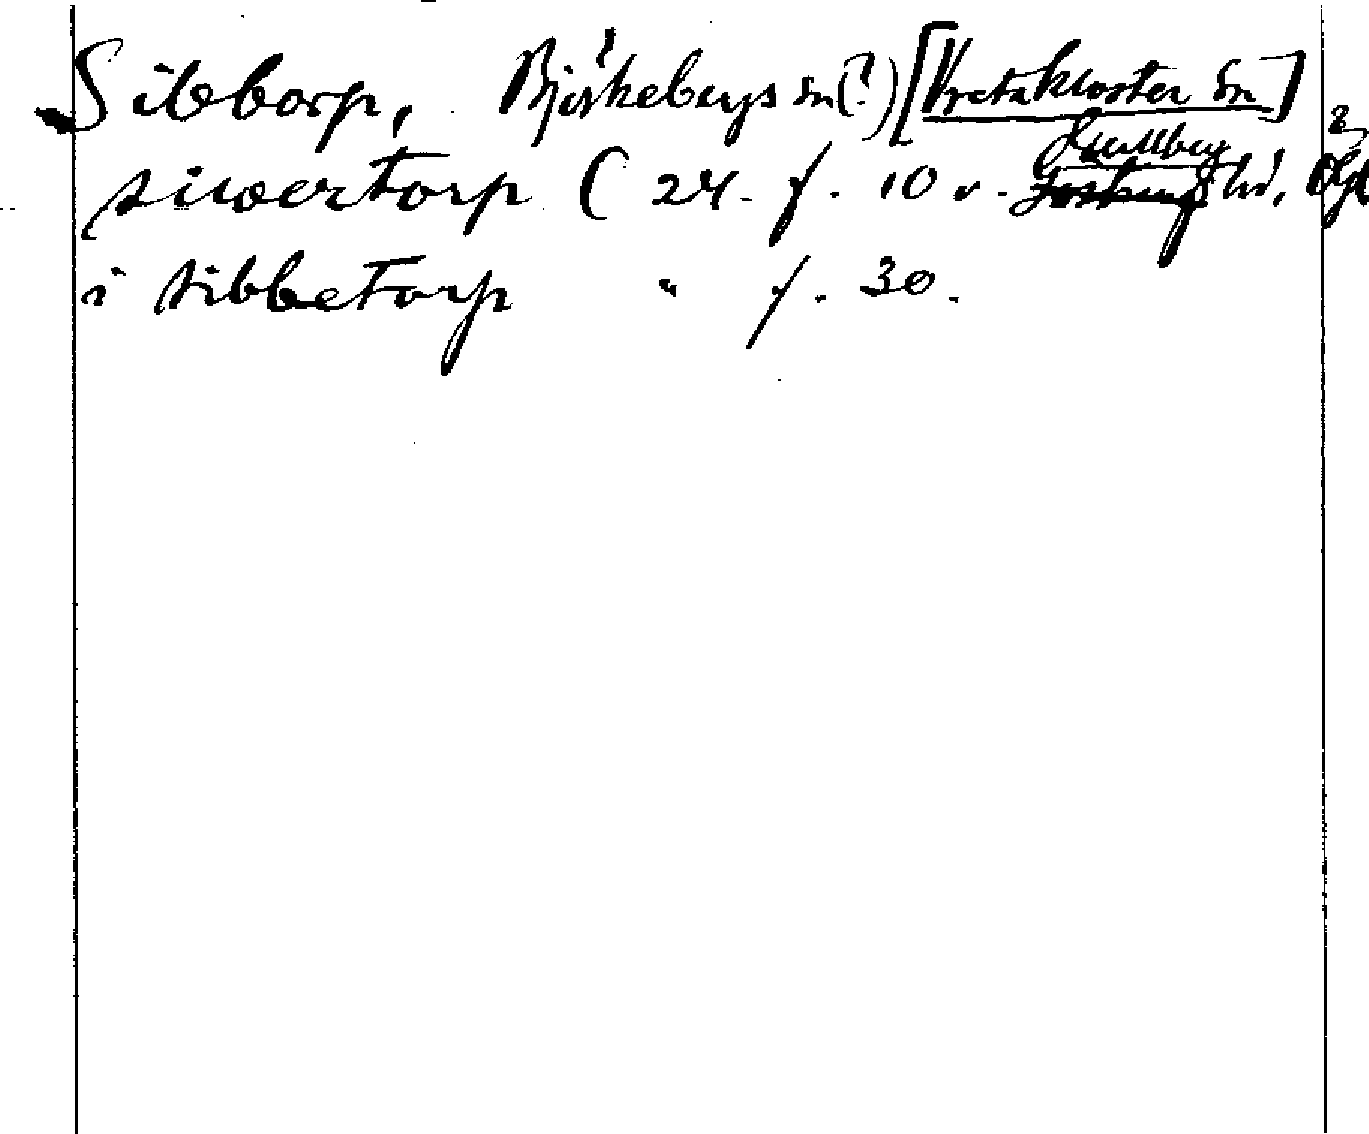 Sibborp, Björkebergs sn (?) [Vretakloster sn]
siwertorp ( 24. f. 10 v. Gullberg hd, Ögl
i sibbetorp " f. 30.